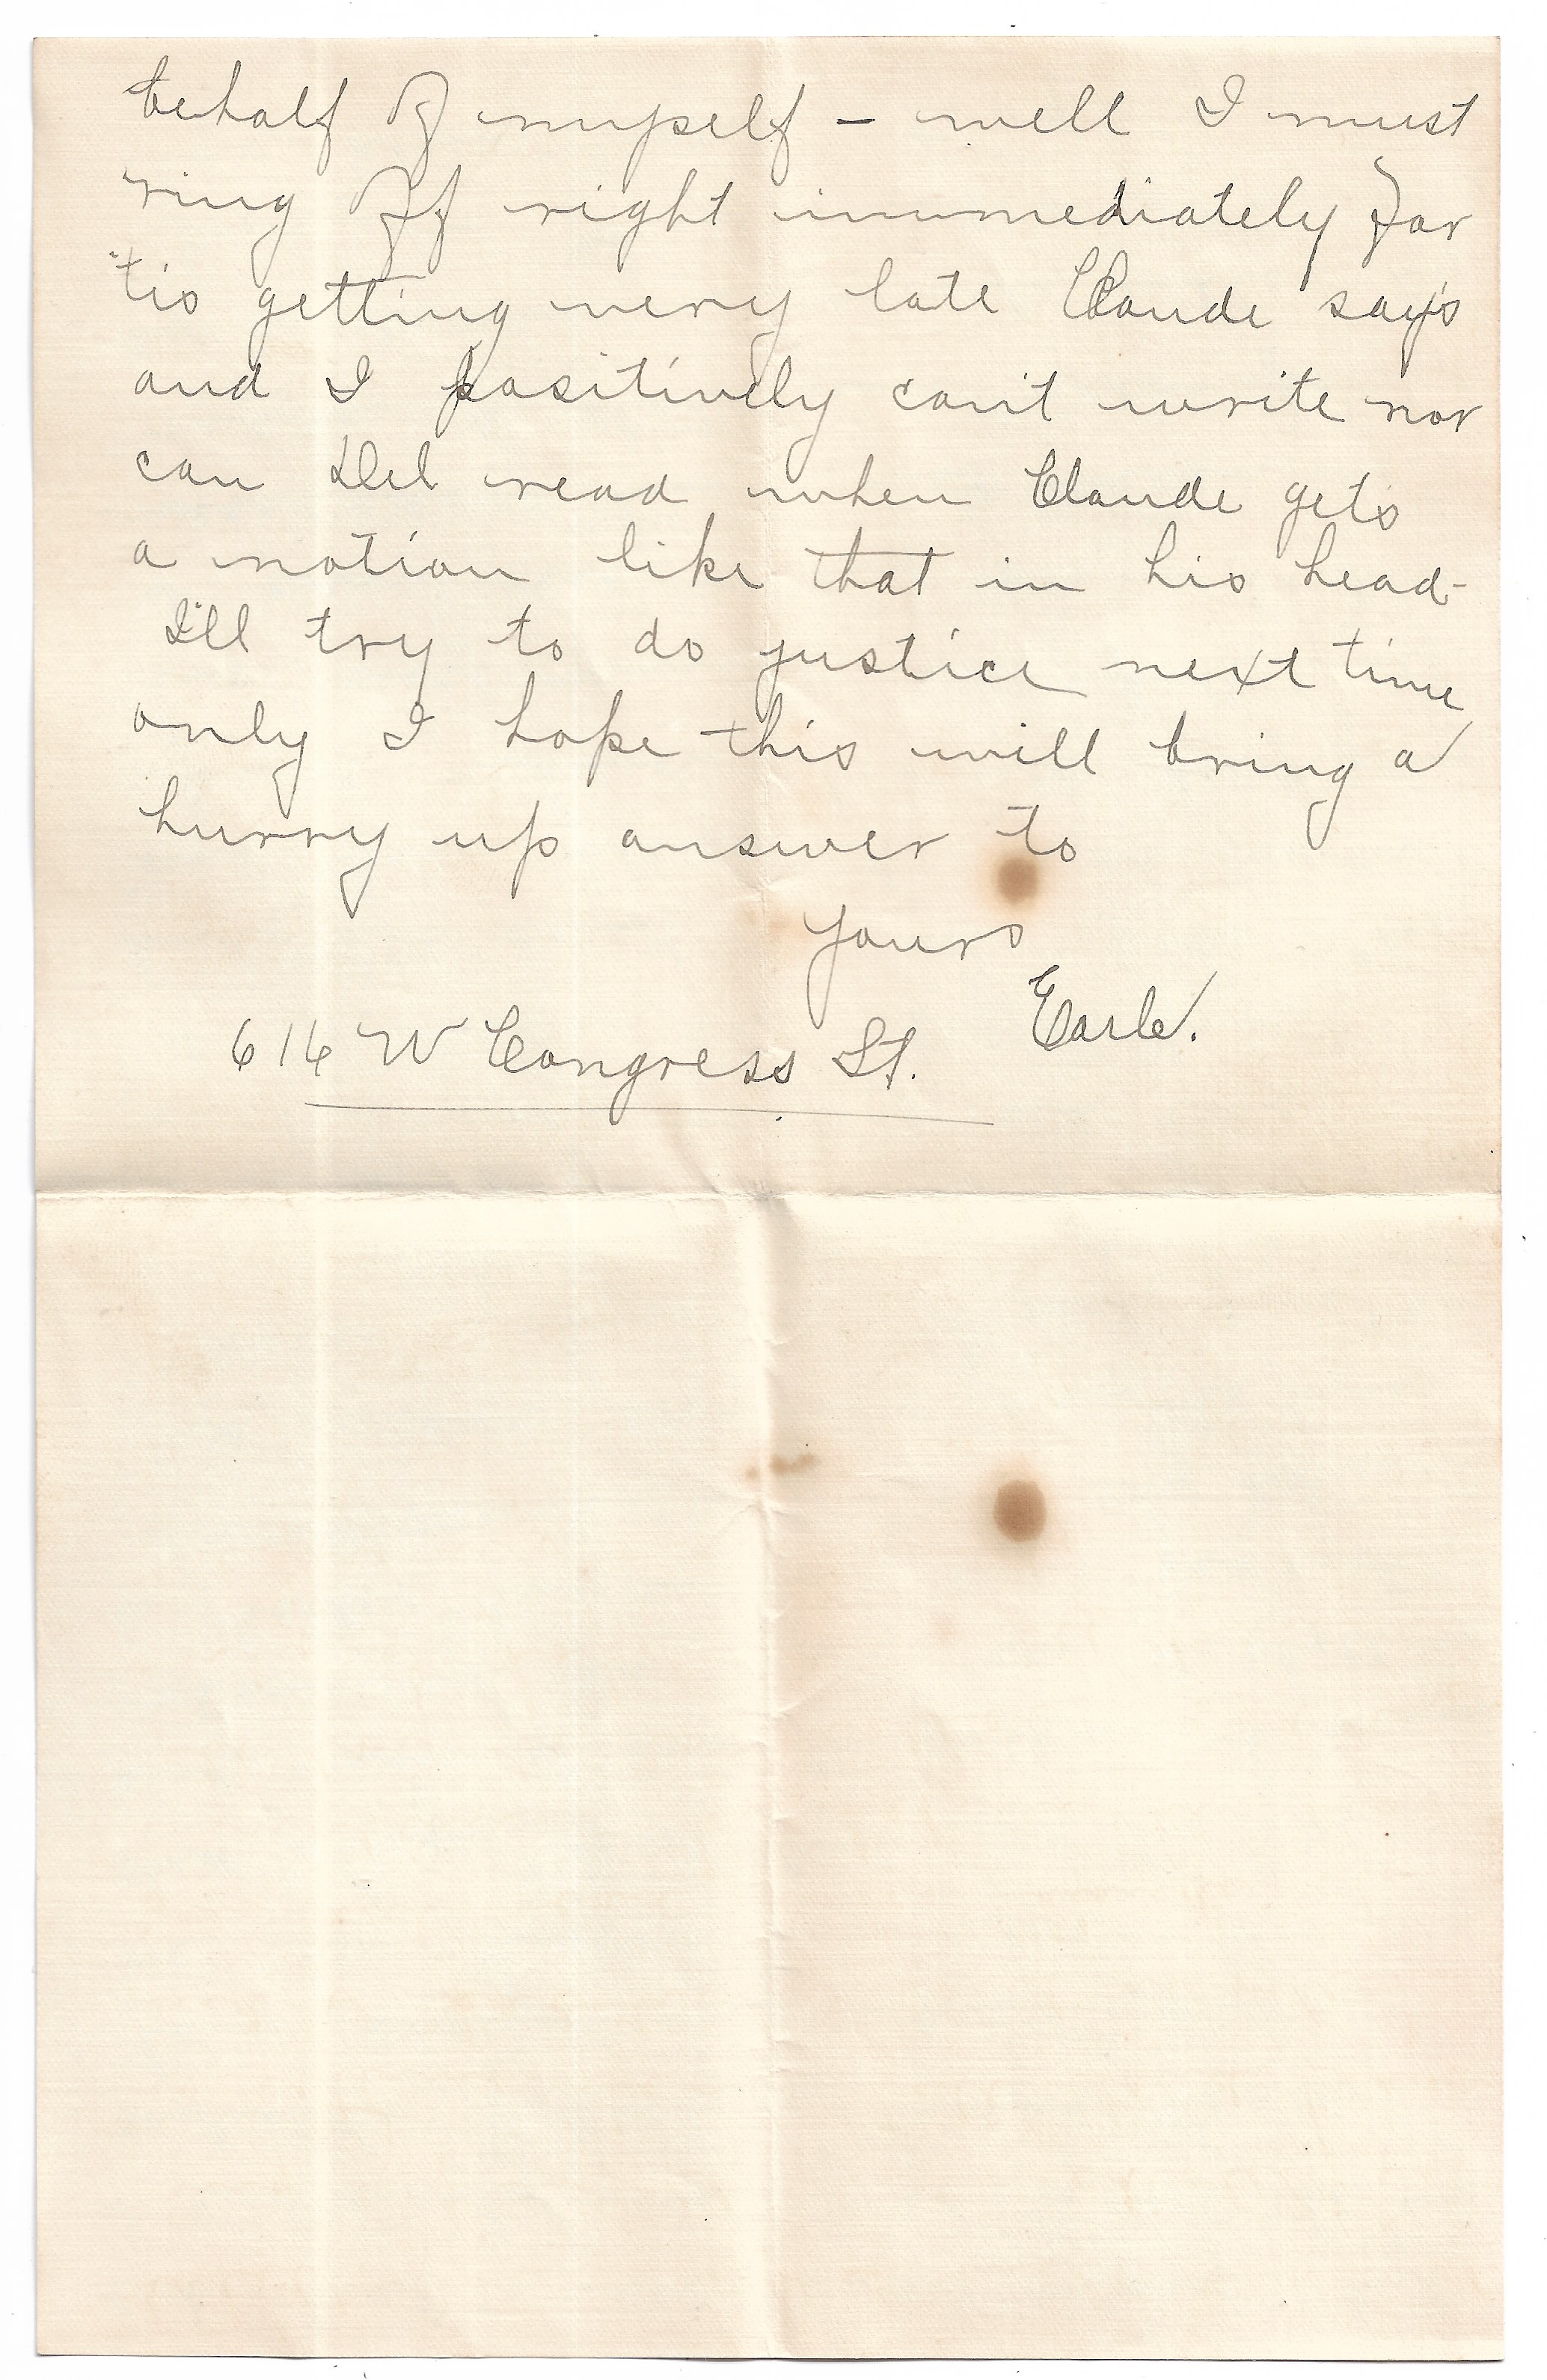 behalf of myself – well I must
ring off right immediately for
'tis getting very late Claude says
and I positively can't write nor
can Del read when Claude gets
a notion like that in his head-
I'll try to do justice next time
only I hope this will bring a
hurry up answer to
yours
Earle.
616 W Congress St.